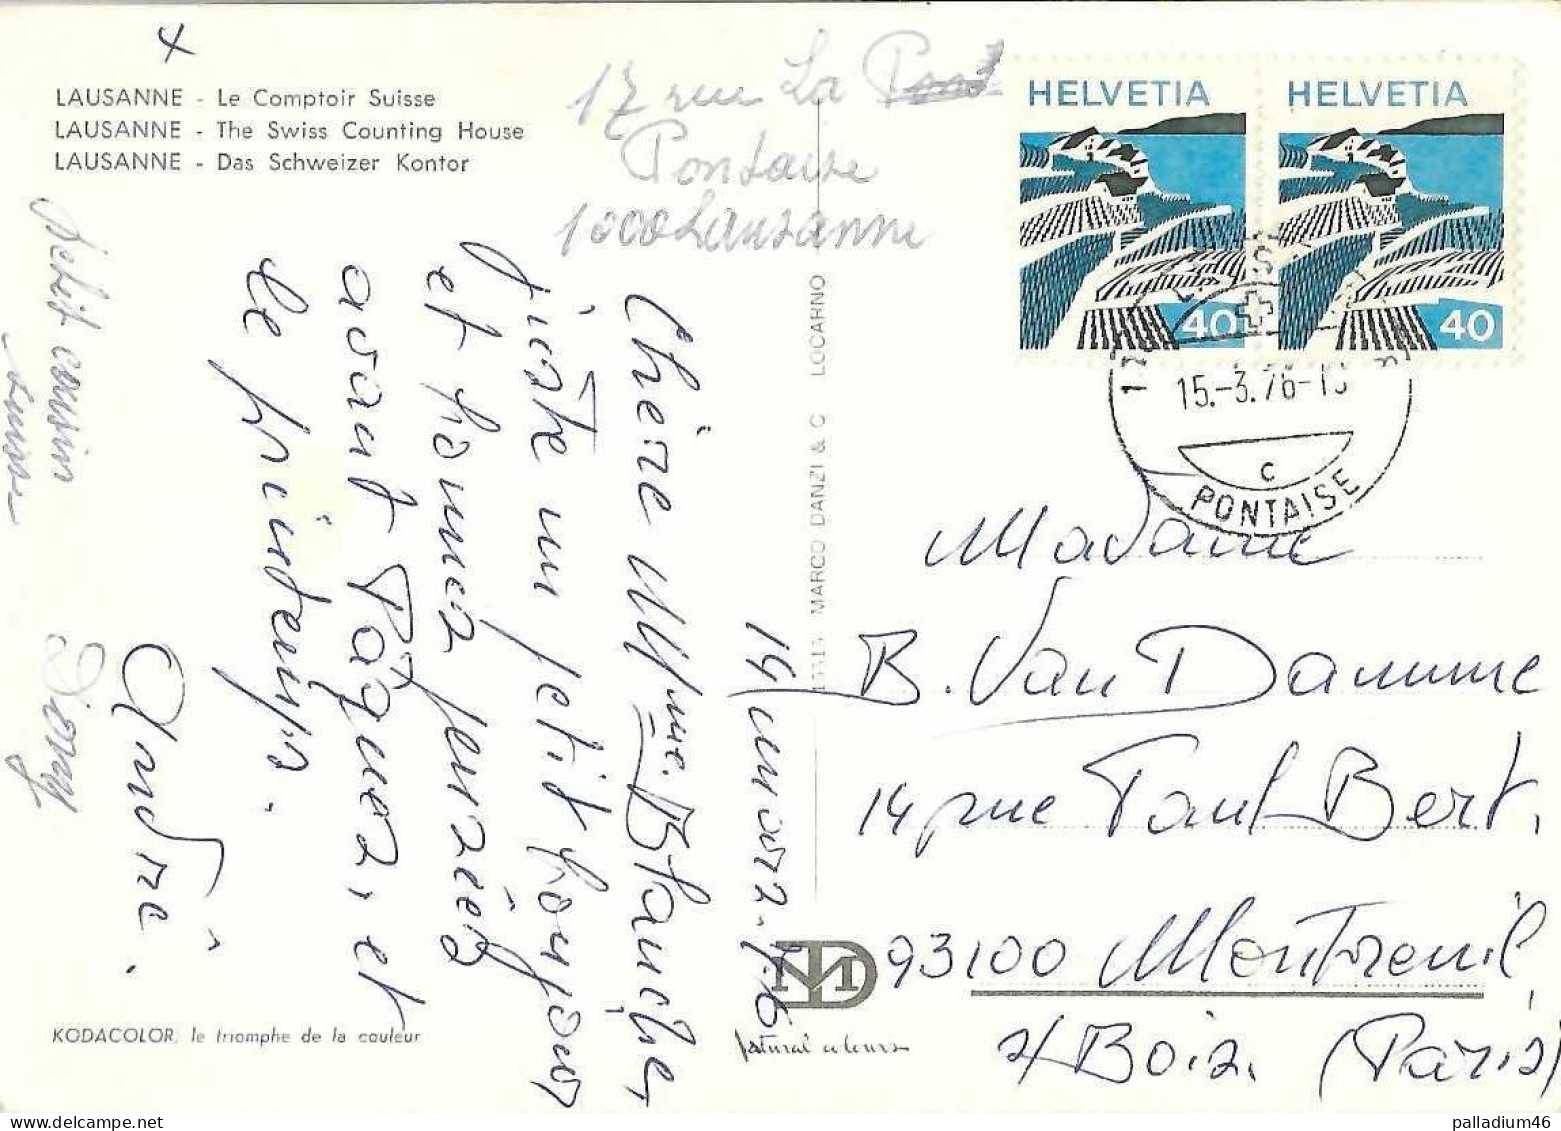 LAUSANNE - Le Comptoir Suisse
LAUSANNE - The Swiss Counting House
LAUSANNE - Das Schweizer Kontor
17 rue La
Pontaise
1000 Lausanne
HELVETIA
40
HELVETIA
40
15.-3.76-
C
PONTAISE
14 mars. 76
Chère Mme. Blanche,
juste un petit bonjour
et bonnes pensées
avant Pâques, et
le printemps.
André.
petit cousin
suisse
MARCO DANZI & C LOCARNO
Madame
B. Van Damme
14 rue Paul Bert,
93100 Montreuil,
s/Bois. (Paris)
KODACOLOR, le triomphe de la couleur
MD
natural colours
palladium46